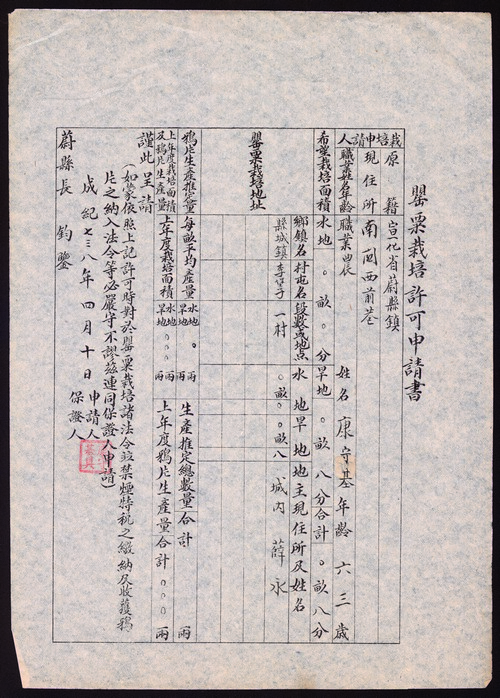 罌粟栽培許可申請書
栽培申請人
原籍 宣化省蔚縣鎮
現住所 南関西前巷
職業姓名年齡 職業 農 姓名 康守基 年齡 六三歲
希望栽培面積 水地 〇畝 分 旱地 〇畝八分 合計 〇畝八分
罌粟栽培地址
鄉鎮名 村屯名 段數或地点 水地 旱地 地主現住所及姓名
縣城鎮 一村 〇畝 〇畝八 城内 薛永
鴉片生產推定量 每畝平均產量 水地 〇兩 旱地 兩 生產推定總數量合計 兩
上年度栽培面積及鴉片生產量 上年度栽培面積 水地 旱地 〇〇〇 兩 上年度鴉片生產量合計 〇〇〇兩
謹此呈請
(如蒙依照上記許可時對於罌粟栽培諸法令並禁煙特稅之繳納及收穫鴉
片之納入法令等必嚴守不謬茲連同保證人申請)
成紀七三八年四月十日 申請人
保證人
蔚縣長 鈞鑒